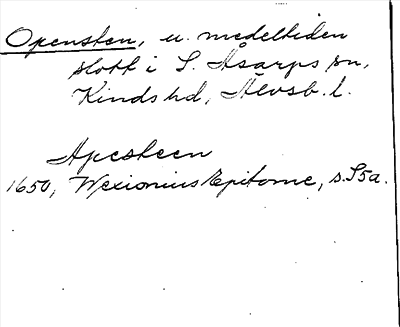 Opensten, u. medeltiden
slott i S. Åsarps sn,
Kinds hd, Älvsb. l.
Apesteen
1650, Wexionius Epitome, s. S5a.